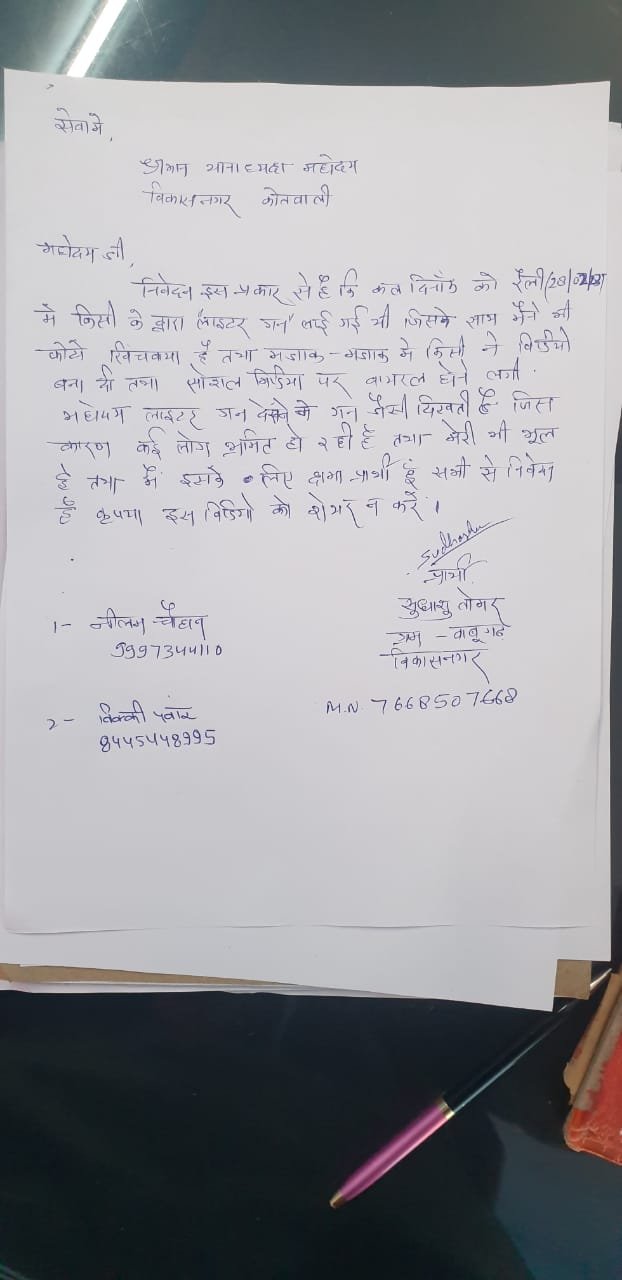 सेवामे,
श्रीमान थानाध्यक्ष महोदय
विकासनगर कोतवाली
महोदय जी,
निवेदन इस प्रकार से है कि कल दिनाँक को रैली (28/02/
मे किसी के द्वारा "लाइटर गन" लाई गई थी जिसके साथ मैंने भी
फोटो खिंचवाया है तथा मजाक-मजाक मे किसी ने विडियो
बना दी तथा सोशल मिडिया पर वायरल होने लगी.
महोदय लाइटर गन देखने मे गन जैसी दिखती है जिस
कारण कई लोग भ्रमित हो रही है तथा मेरी भी भूल
है तथा मैं इसके लिए क्षमा प्रार्थी हूं सभी से निवेदन
है कृपया इस विडियो को शेयर न करें।
Sudhanshu
प्रार्थी
सुधांशु तोमर
ग्राम - बाबूगढ
विकासनगर
M.N. 7668507668
1- नीलम चौहान
9997344110
2- विक्की पंवार
8445448995